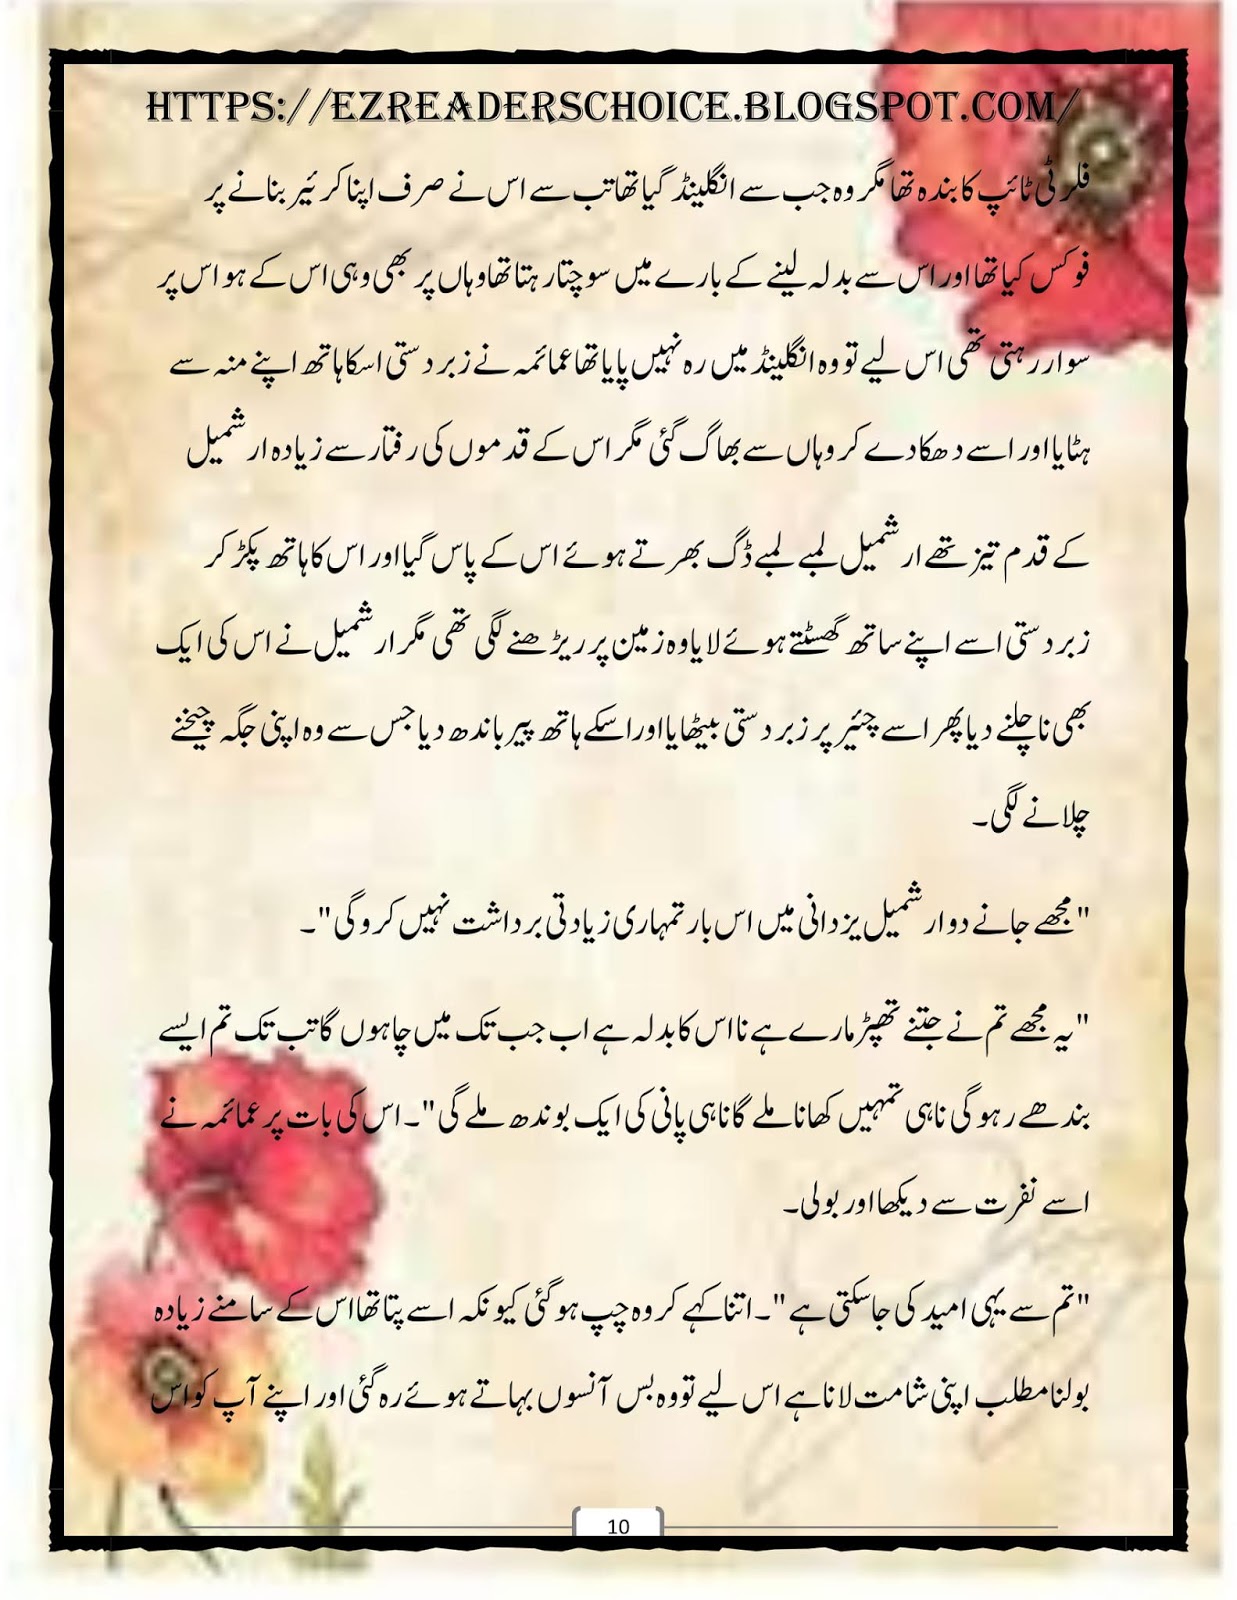 HTTPS://EZREADERSCHOICE.BLOGSPOT.COM/
فلرٹی ٹائپ کا بندہ تھا مگر وہ جب سے انگلینڈ گیا تھا تب سے اس نے صرف اپنا کرئیر بنانے پر
فوکس کیا تھا اور اس سے بدلہ لینے کے بارے میں سوچتا رہتا تھا وہاں پر بھی وہی اس کے ہواس پر
سوار رہتی تھی اس لیے تو وہ انگلینڈ میں رہ نہیں پایا تھا عمائمہ نے زبردستی اسکا ہاتھ اپنے منہ سے
ہٹایا اور اسے دھکا دے کر وہاں سے بھاگ گئی مگر اس کے قدموں کی رفتار سے زیادہ ارشمیل
کے قدم تیز تھے ارشمیل لمبے لمبے ڈگ بھرتے ہوئے اس کے پاس گیا اور اس کا ہاتھ پکڑ کر
زبردستی اسے اپنے ساتھ گھسٹتے ہوئے لایا وہ زمین پر ریڑھنے لگی تھی مگر ارشمیل نے اس کی ایک
بھی نا چلنے دیا پھر اسے چئیر پر زبردستی بیٹھایا اور اسکے ہاتھ پیر باندھ دیا جس سے وہ اپنی جگہ چیخنے
چلانے لگی۔
"مجھے جانے دو ارشمیل یزدانی میں اس بار تمہاری زیادتی برداشت نہیں کروگی"۔
"یہ مجھے تم نے جتنے تھپڑ مارے ہے نا اس کا بدلہ ہے اب جب تک میں چاہوں گا تب تک تم ایسے
بندھے رہو گی نا ہی تمہیں کھانا ملے گا نا ہی پانی کی ایک بوندھ ملے گی"۔ اس کی بات پر عمائمہ نے
اسے نفرت سے دیکھا اور بولی۔
"تم سے یہی امید کی جاسکتی ہے"۔ اتنا کہے کر وہ چپ ہوگئی کیونکہ اسے پتا تھا اس کے سامنے زیادہ
بولنا مطلب اپنی شامت لانا ہے اس لیے تو وہ بس آنسوں بہاتے ہوئے رہ گئی اور اپنے آپ کو اس
10